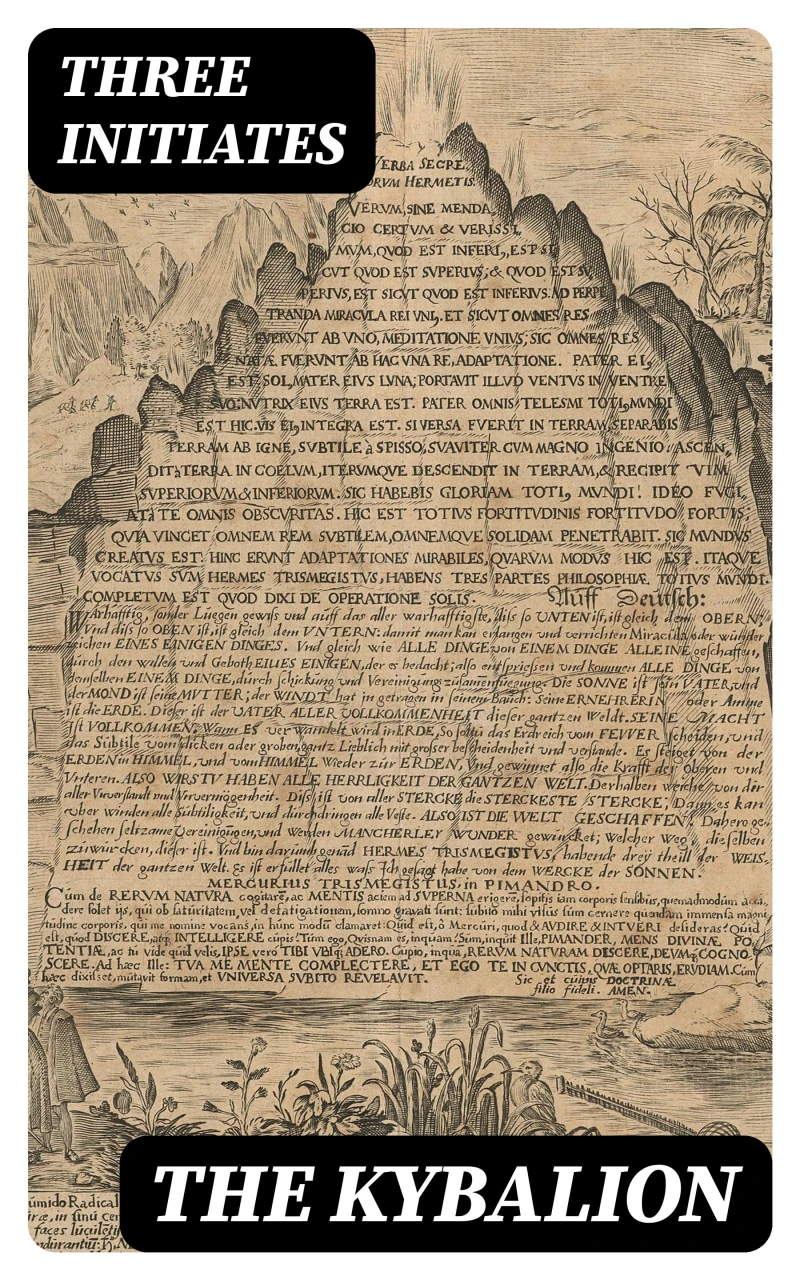 THREE
INITIATES
VERBA SECRE
ORVM HERMETIS.
VERUM, SINE MENDA,
CIO CERTVM & VERISSI,
MVM, QVOD EST INFERI,, EST SI
CVT QVOD EST SVPERIVS; & QVOD EST SV,
PERIVS, EST SICVT QVOD EST INFERIVS. AD PERPE
TRANDA MIRACVLA REI VNI,, ET SICVT OMNES RES
FVERVNT AB VNO, MEDITATIONE VNIVS; SIC OMNES RES
NATÆ FVERVNT AB HAC VNA RE, ADAPTATIONE. PATER EI,
EST SOL, MATER EIVS LVNA; PORTAVIT ILLVD VENTVS IN VENTRE
SVO; NVTRIX EIVS TERRA EST. PATER OMNIS TELESMI TOTI, MVNDI
EST HIC. VIS EI, INTEGRA EST. SI VERSA FVERIT IN TERRAM, SEPARABIS
TERRAM AB IGNE, SVBTILE à SPISSO, SVAVITER CVM MAGNO INGENIO. ASCEN,
DIT à TERRA IN COELVM, ITERVMQVE DESCENDIT IN TERRAM, & RECIPIT VIM
SVPERIORVM & INFERIORVM. SIC HABEBIS GLORIAM TOTI, MVNDI! IDEO FVGI,
ATà TE OMNIS OBSCVRITAS. HIC EST TOTIVS FORTITVDINIS FORTITVDO FORTIS:
QVIA VINCET OMNEM REM SVBTILEM, OMNEMQVE SOLIDAM PENETRABIT. SIC MVNDVS
CREATVS EST. HINC ERVNT ADAPTATIONES MIRABILES, QVARVM MODVS HIC EST. ITAQVE
VOCATVS SVM HERMES TRISMEGISTVS, HABENS TRES PARTES PHILOSOPHIÆ TOTIVS MVNDI.
COMPLETVM EST QVOD DIXI DE OPERATIONE SOLIS. Auff Deutsch:
Warhafftig, sonder Luegen gewiss und auff das aller warhafftigste, diss so VNTEN ist, ist gleich dem OBERN;
Vnd diss so OBEN ist, ist gleich dem VNTERN: damit man kan erlangen und verrichten Miracula oder wunder
zeichen EINES EINIGEN DINGES. Vnd gleich wie ALLE DINGE von EINEM DINGE ALLEINE geschaffen,
durch den willen und Geboth EINES EINIGEN, der es bedacht; also entspriessen und kommen ALLE DINGE von
demselben EINEM DINGE, durch schickung und Vereinigung zusamenfuegung. Die SONNE ist sein VATER, und
der MOND ist seine MVTTER; der WINDT hat in getragen in seinem Bauch: Seine ERNEHRERIN oder Amme
ist die ERDE. Dieser ist der VATER ALLER VOLLKOMMENHEIT dieser gantzen Weldt. SEINE MACHT
Ist VOLLKOMMEN; Wann ES verwandelt wird in ERDE, So soltu das Erdreich vom FEWER scheiden, und
das Subtile vom dicken oder groben, gantz Lieblich mit groser bescheidenheit und verstande. Es steiget von der
ERDEN in HIMMEL, und vom HIMMEL Wieder zur ERDEN, Vnd gewinnet also die Krafft der Oberen und
Vnteren. ALSO WIRSTV HABEN ALLE HERRLIGKEIT DER GANTZEN WELT. Derhalben weiche von dir
aller Vnverstandt und Vnvermögenheit. Diss ist von aller STERCKE die STERCKESTE STERCKE; Dann es kan
uber winden alle Subtiligkeit, und durchdringen alle Veste. ALSO IST DIE WELT GESCHAFFEN. Dahero ge,
schehen seltzame vereinigungen, und Werden MANCHERLEY WVNDER gewircket; Welcher Weg, dieselben
zu würcken, dieser ist. Vnd bin darumb genand HERMES TRISMEGISTVS, habende drey theill der WEIS,
HEIT der gantzen Welt. Es ist erfüllet alles wass Ich gesagt habe von dem WERCKE der SONNEN.
MERCURIUS TRISMEGISTUS, in PIMANDRO.
Cùm de RERVM NATVRA cogitarē, ac MENTIS aciem ad SVPERNA erigere, sopitis iam corporis sensibus, quemadmodùm acci,
dere solet ijs, qui ob saturitatem, vel defatigationem, somno gravati sunt: subitò mihi visus sum cernere quendam immensa magni,
tudine corporis, qui me nomine vocans, in hunc modū clamaret: Quid est, ô Mercuri, quod & AVDIRE & INTVERI desideras? Quid
est, quod DISCERE, atq; INTELLIGERE cupis? Tum ego, Quisnam es, inquam? Sum, inquit Ille, PIMANDER, MENS DIVINÆ PO,
TENTIÆ, ac tu vide quid velis, IPSE vero TIBI VBIQ; ADERO. Cupio, inquā, RERVM NATVRAM DISCERE, DEVMQ; COGNO,
SCERE. Ad hæc Ille: TVA ME MENTE COMPLECTERE, ET EGO TE IN CVNCTIS, QVÆ OPTARIS, ERVDIAM. Cùm
hæc dixisset, mutavit formam, et VNIVERSA SVBITO REVELAVIT.
Sic et cuius DOCTRINÆ
filio fideli. AMEN.
úmido Radical
faces
THE KYBALION